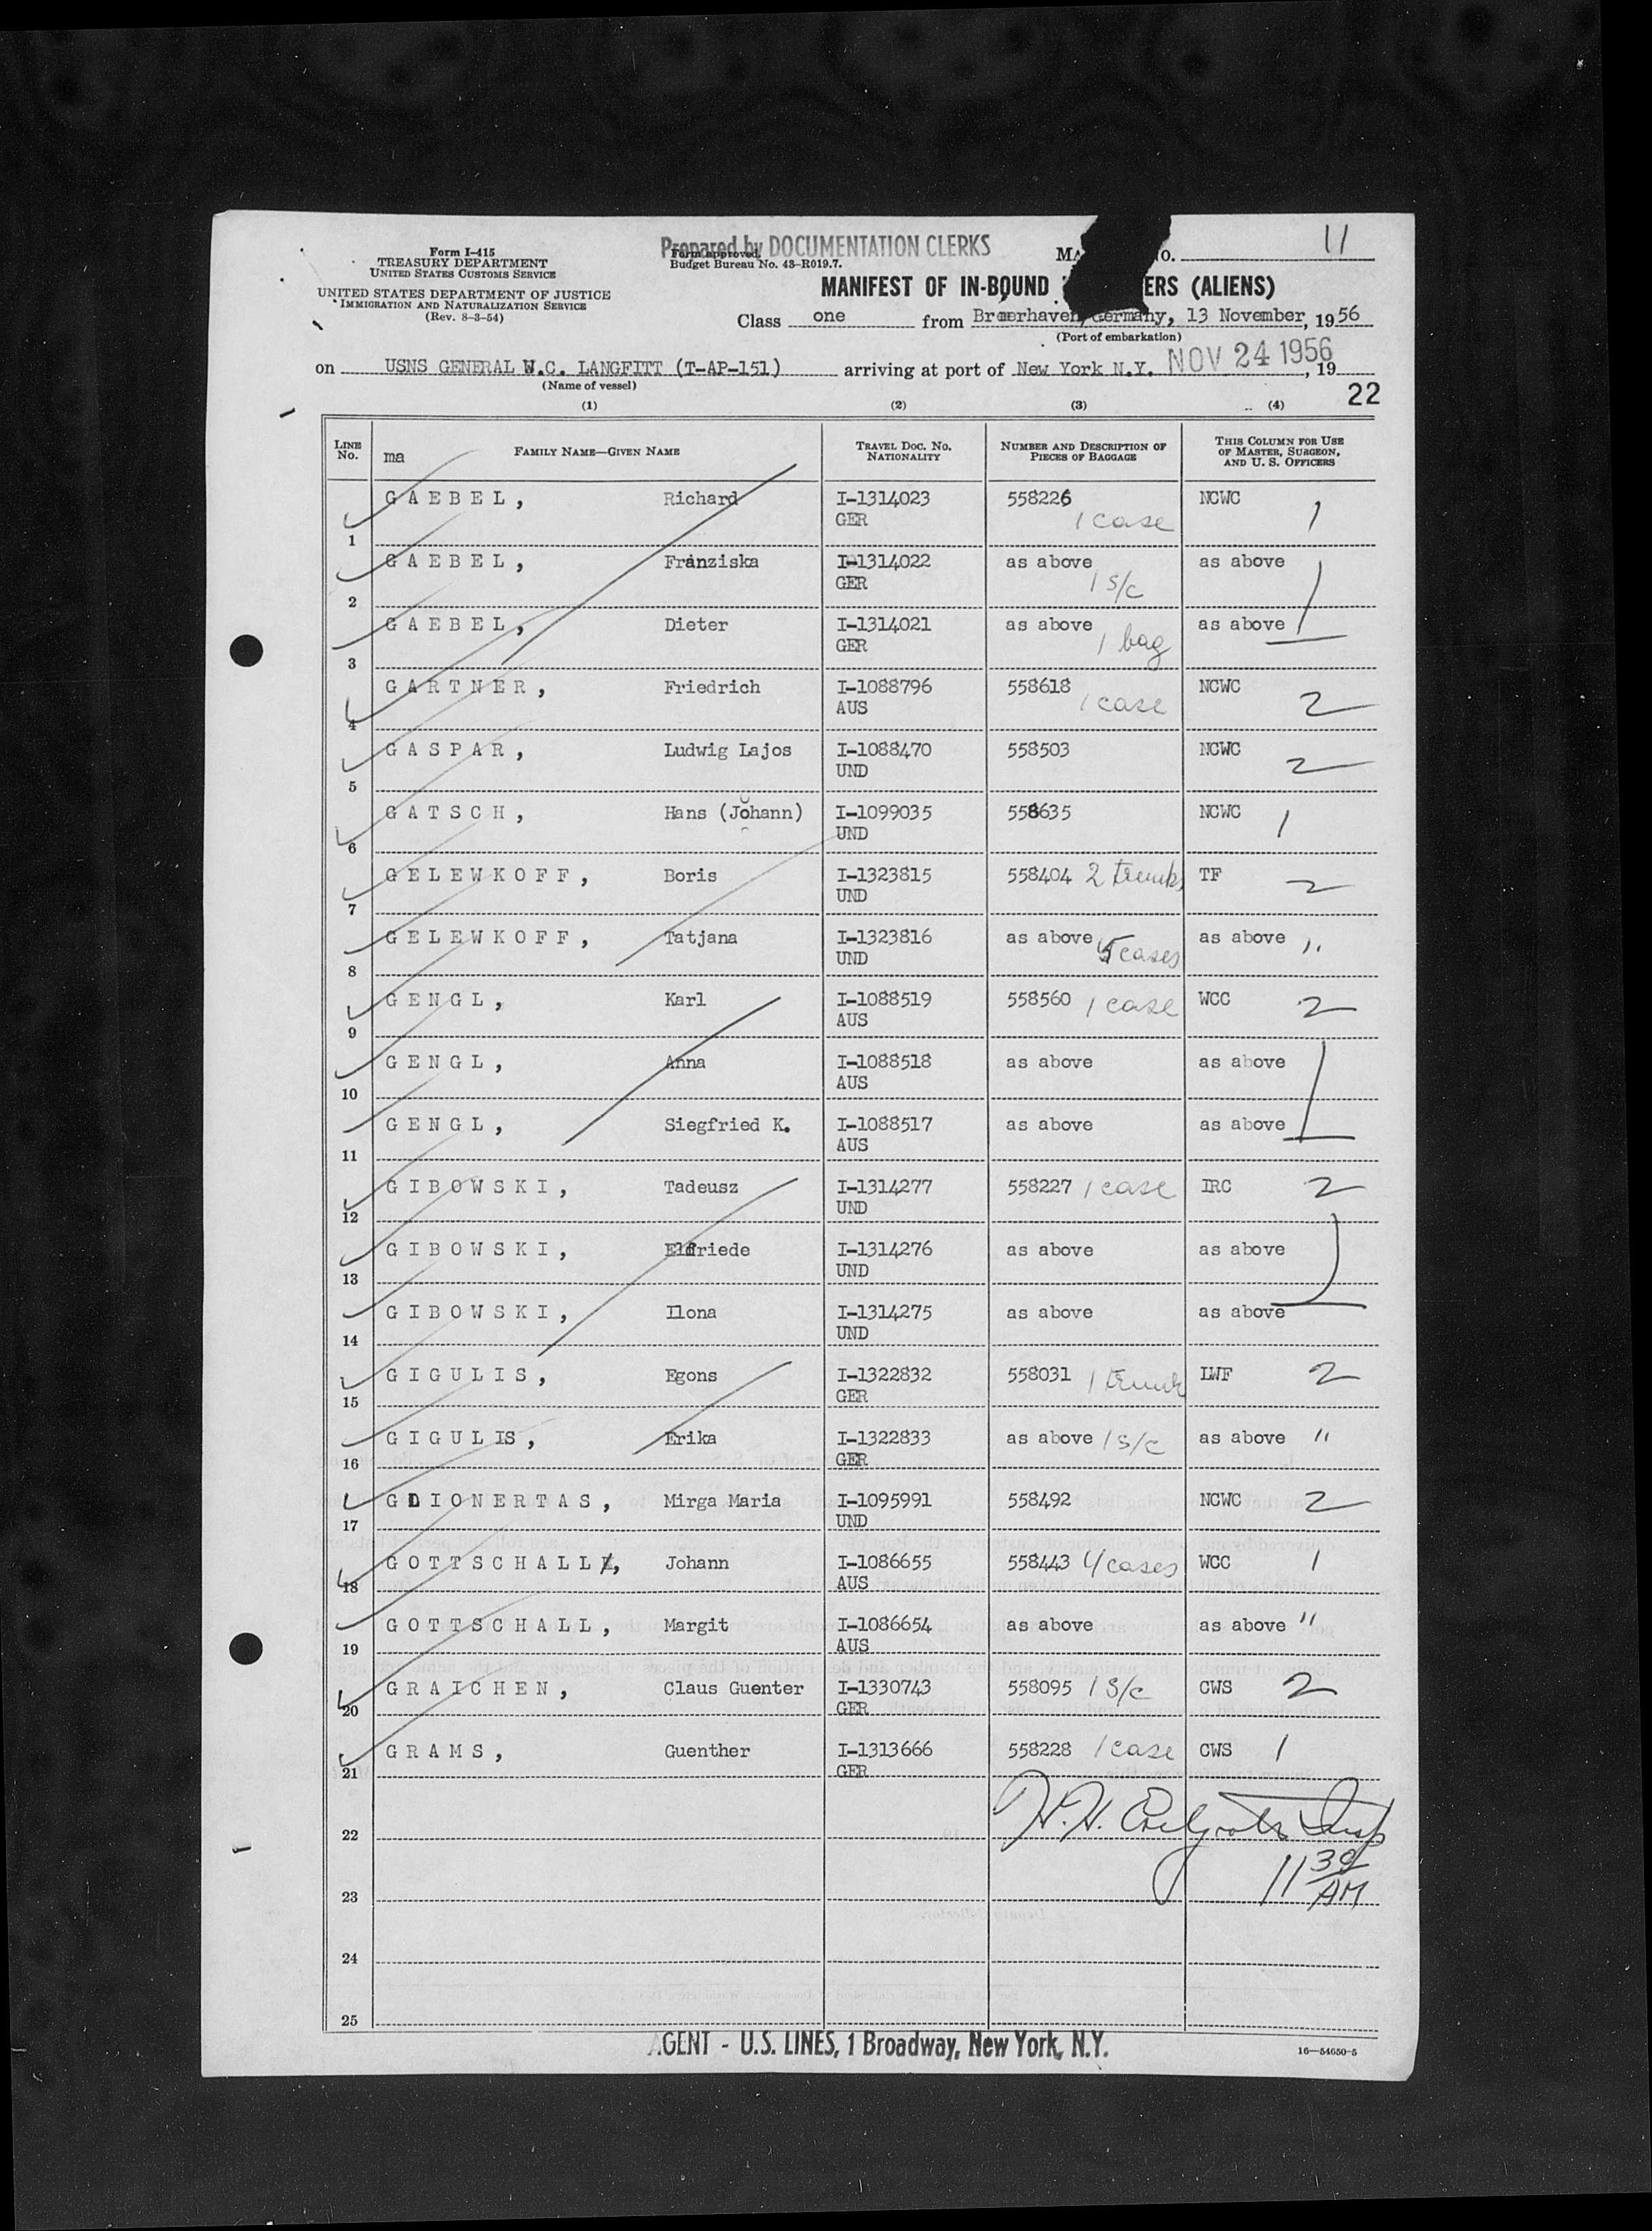 11
Form I-415
TREASURY DEPARTMENT
UNITED STATES CUSTOMS SERVICE
UNITED STATES DEPARTMENT OF JUSTICE
IMMIGRATION AND NATURALIZATION SERVICE
(Rev. 8-3-54)
Prepared by DOCUMENTATION CLERKS
Form approved.
Budget Bureau No. 43-R019.7.
MANIFEST OF IN-BOUND ERS (ALIENS)
Class one from Bremerhaven, Germany, 13 November, 1956
(Port of embarkation)
on USNS GENERAL W.C. LANGFITT (T-AP-151) arriving at port of New York N.Y. NOV 24 1956, 19
(Name of vessel)
22
(1) (2) (3) (4)
LINE No. ma FAMILY NAME—GIVEN NAME TRAVEL DOC. No. NATIONALITY NUMBER AND DESCRIPTION OF PIECES OF BAGGAGE THIS COLUMN FOR USE OF MASTER, SURGEON, AND U. S. OFFICERS
1 GAEBEL, Richard I-1314023 GER 558226 1 case NCWC 1
2 GAEBEL, Franziska I-1314022 GER as above 1 s/c as above
3 GAEBEL, Dieter I-1314021 GER as above 1 bag as above
4 GARTNER, Friedrich I-1088796 AUS 558618 1 case NCWC 2
5 GASPAR, Ludwig Lajos I-1088470 UND 558503 NCWC 2
6 GATSCH, Hans (Johann) I-1099035 UND 558635 NCWC 1
7 GELEWKOFF, Boris I-1323815 UND 558404 2 trunks TF 2
8 GELEWKOFF, Tatjana I-1323816 UND as above 5 cases as above "
9 GENGL, Karl I-1088519 AUS 558560 1 case WCC 2
10 GENGL, Anna I-1088518 AUS as above as above
11 GENGL, Siegfried K. I-1088517 AUS as above as above
12 GIBOWSKI, Tadeusz I-1314277 UND 558227 1 case IRC 2
13 GIBOWSKI, Elfriede I-1314276 UND as above as above
14 GIBOWSKI, Ilona I-1314275 UND as above as above
15 GIGULIS, Egons I-1322832 GER 558031 1 trunk LWF 2
16 GIGULIS, Erika I-1322833 GER as above 1 s/c as above "
17 GLIONERTAS, Mirga Maria I-1095991 UND 558492 NCWC 2
18 GOTTSCHALL, Johann I-1086655 AUS 558443 4 cases WCC 1
19 GOTTSCHALL, Margit I-1086654 AUS as above as above "
20 GRAICHEN, Claus Guenter I-1330743 GER 558095 1 s/c CWS 2
21 GRAMS, Guenther I-1313666 GER 558228 1 case CWS 1
22
23 11 30 AM
24
25
AGENT - U.S. LINES, 1 Broadway, New York, N.Y.
16—54650-5